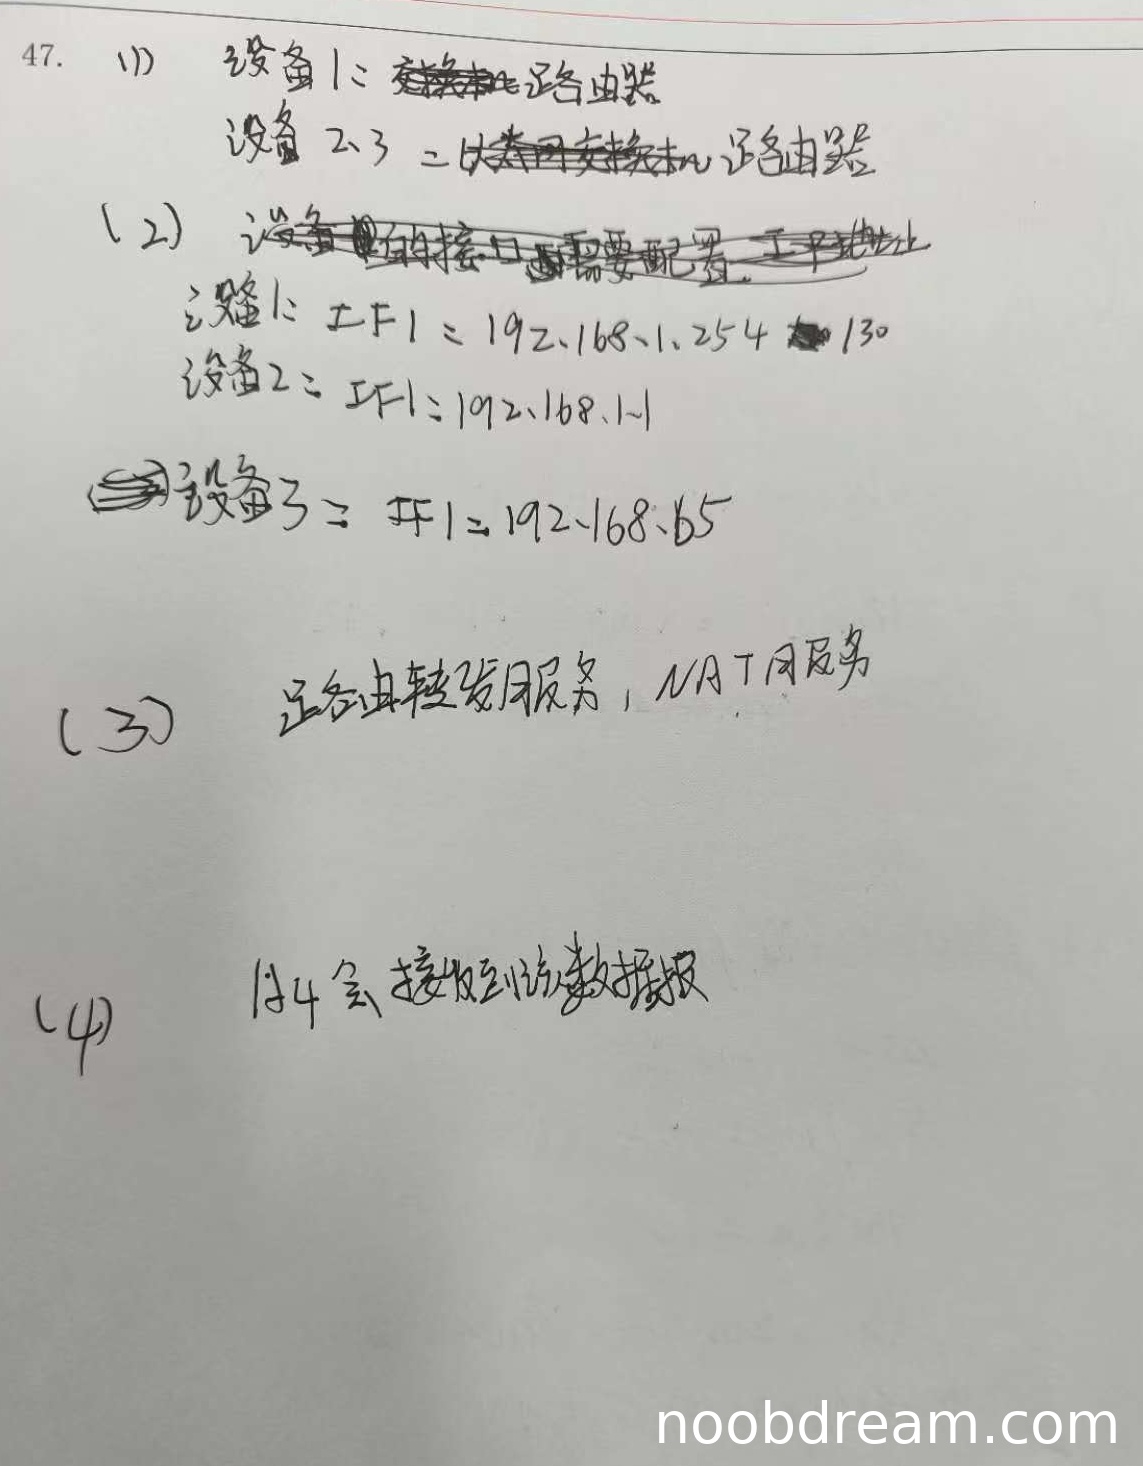 47. (1) 设备1: 路由器
设备2、3: 路由器
(2)
设备1: IF1: 192.168.1.254 130
设备2: IF1: 192.168.1.1
设备3: IF1: 192.168.65
(3) 路由转发服务, NAT服务
(4) H4会接收到该数据报
noobdream.com